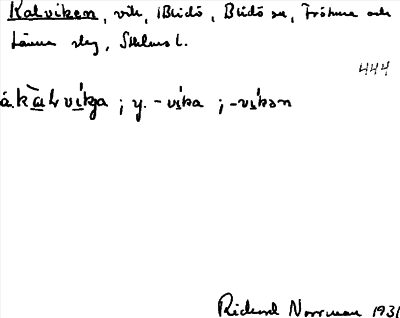 Kalviken, vik, Blidö, Blidö sn, Frötuna och
Länna slg, Sthlms l.
444
á. kàlvíkja ; y. -víka ; -víkən
Rickard Norrman 1931